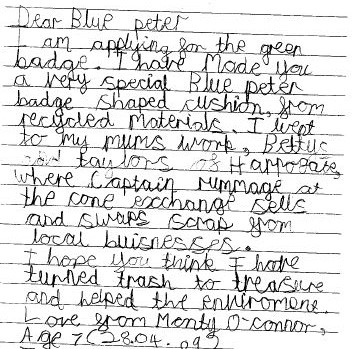 Dear Blue peter
am applying for the green
badge. I have Made you
a very special Blue peter
badge shaped cushion, from
recycled materials. I went
to my mums work, Bettys
and taylors of Harrogate,
where Captain rummage at
the cone exchange sells
and swaps scrap from
local buisnesses.
I hope you think I have
turned trash to treasure
and helped the enviroment.
Love from Monty O'Connor,
Age 7 (28.04.09)